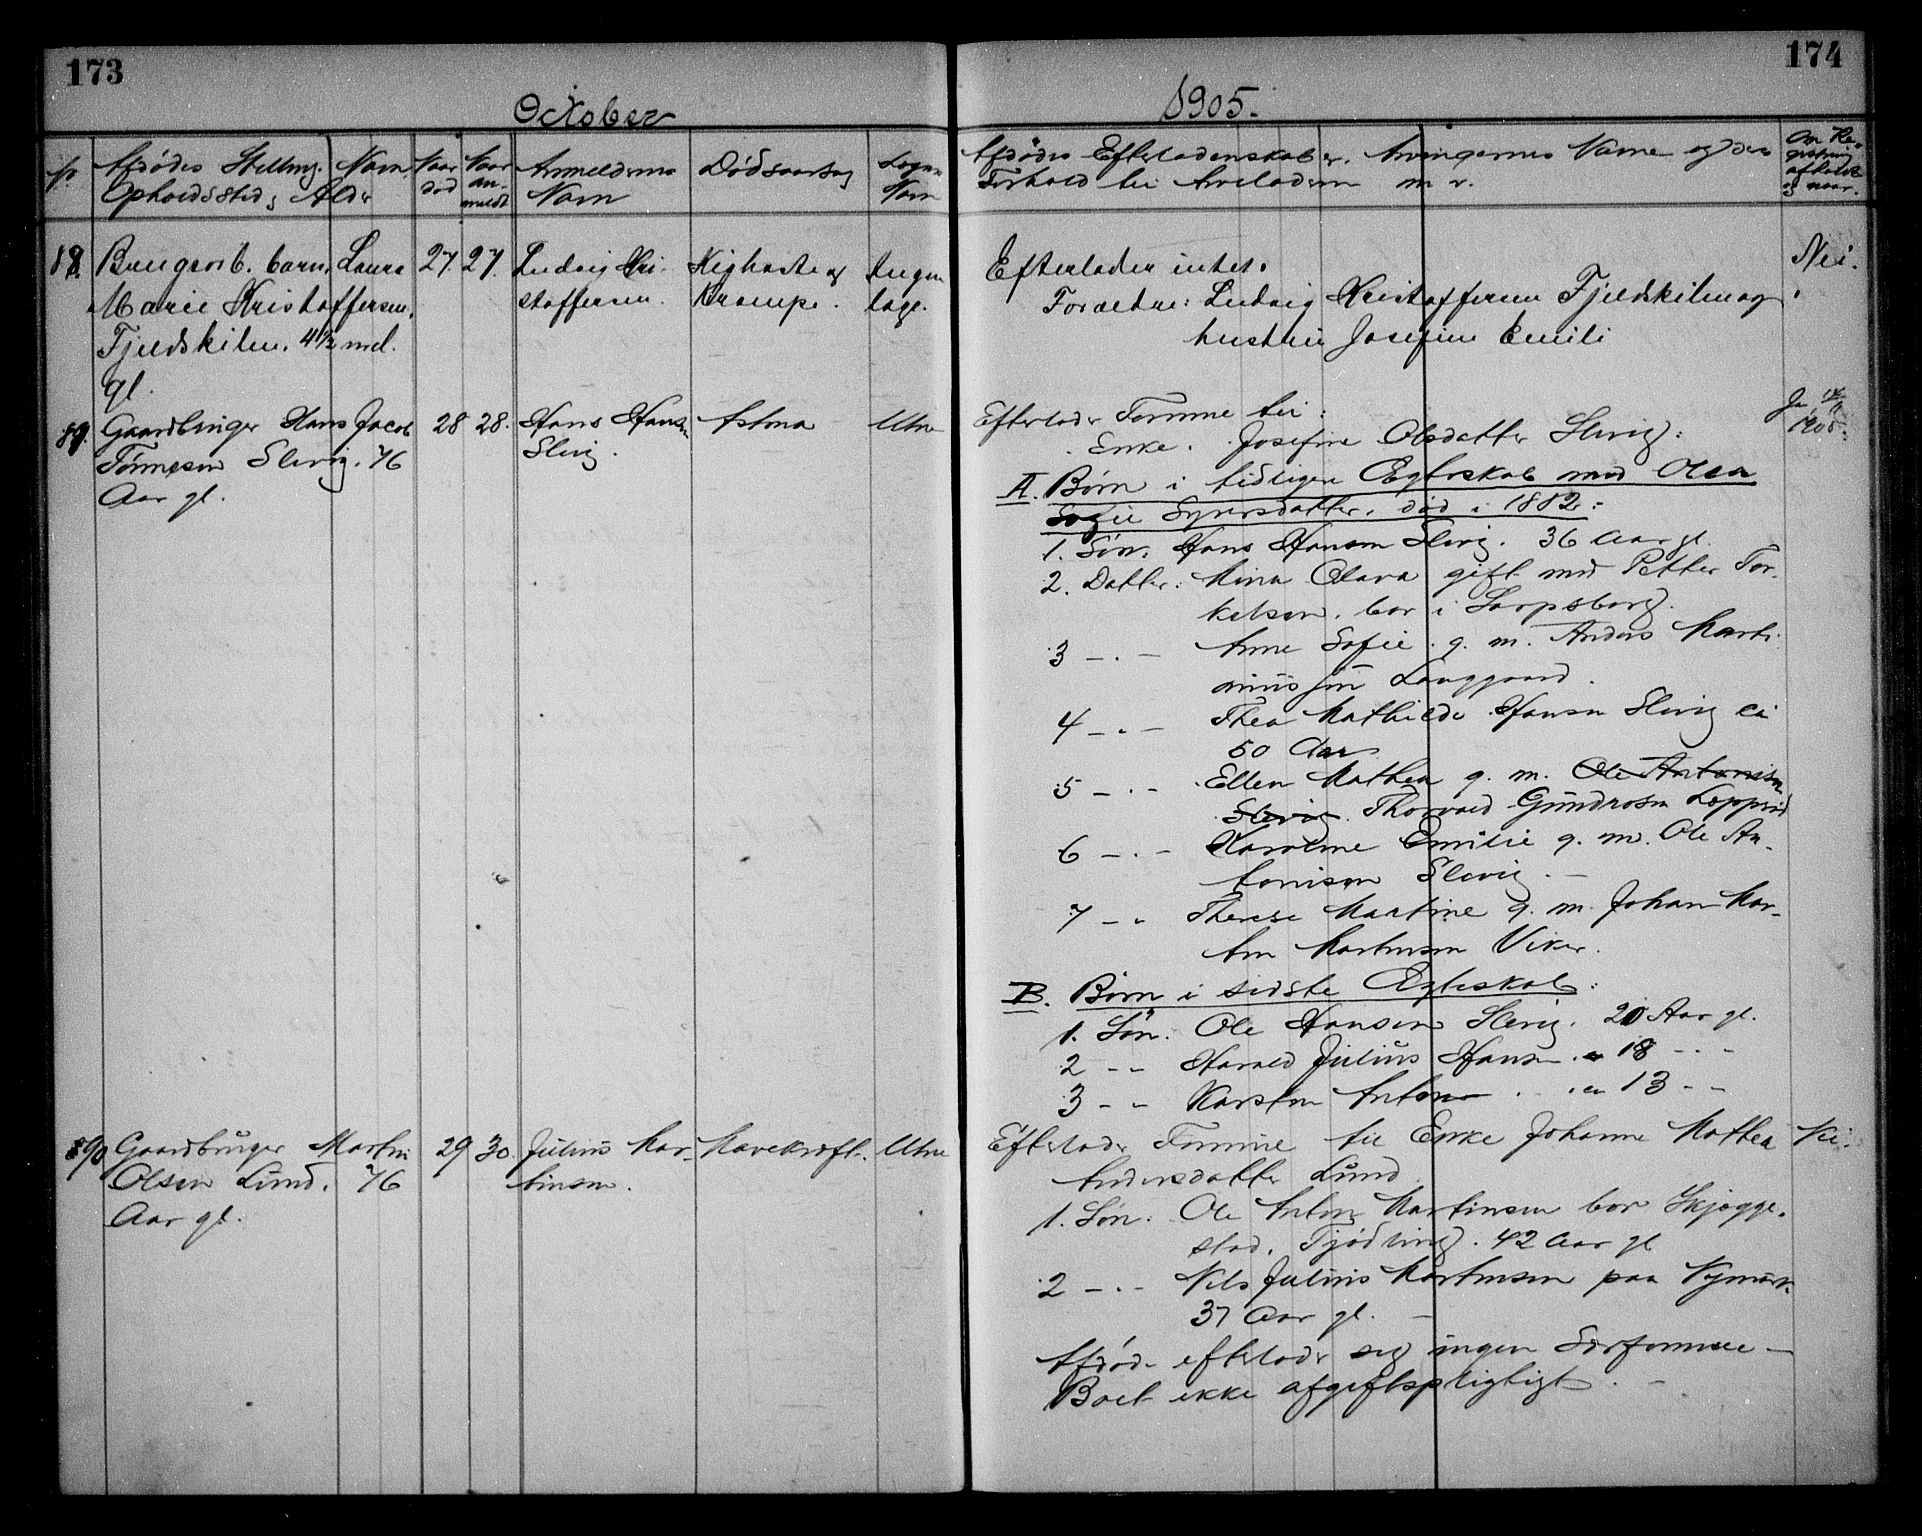 173
174
October
1905.
Afdødes Stilling. Navn
Opholdssted, Alder
Naar
død
Naar
an-
meldt
Anmelderens
Navn
Dødsaarsag
Sogns
Navn
Afdødes Efterladenskaber. Arvingernes Navne og deres
Forhold til Arveladeren m. v.
Om Re-
gistring
afholdt
og naar.
88. Barn, Laura
Marie Kristoffersen,
Fjeldskilen. 4½ md.
gl.
27. 27.
Ludvig Kri-
stoffersen.
Kighoste og
Krampe.
Ingen
Efterlader intet.
Forældre: Ludvig Kristoffersen Fjeldskilen og
hustru Josefine Emili
Nei.
89. Gaardbruger Hans Jacob
Tønnesen Slevig. 76
Aar gl.
28 28.
Hans Hansen
Slevig.
Astma
Utne
Efterlader Formue til:
Enke. Josefine Olsdatter Slevig:
Ja,
1905.
A. Børn i tidligere Egteskab med Olea
Sofie Syversdatter, død i 1882:
1. Søn. Hans Hansen Slevig. 36 Aar gl.
2. Datter: Mina Olava gift med Petter Tor-
kelsen, bor i Sarpsborg.
3 - . - Anne Sofie g. m. Anders Marti-
niussen Langgaard.
4 - . - Thea Mathilde Hansen Slevig ca
50 Aar
5 - . - Ellen Mathea g. m. Ole Antonisen
Slevig. Thorvald Gundrosen
6 - . - Karoline Emilie g. m. Ole An-
tonisen Slevig. -
7 - " Therese Martine g. m. Johan Mar-
tin Martinsen Viker.
B. Børn i sidste Egteskab:
1. Søn. Ole Hansen Slevig. 20 Aar gl.
2 - - Harald Julius Hansen. " 18 - . -
3 - - Karsten Anton . . " 13 - -
90 Gaardbruger Martin
Olsen Lund. 76
Aar gl.
29 30.
Julius Mar-
tinsen.
Mavekræft.
Utne
Efterlader Formue til Enke Johanne Mathea
Andersdatter Lund
Nei.
1. Søn. Ole Anton Martinsen bor Skjægge-
stad, Tjødling. 42 Aar gl
2 - . - Nils Julius Martinsen paa Nymark.
37 Aar gl. -
Afdøde efterlader sig ingen Særformue -
Boet ikke afgiftspligtigt. -